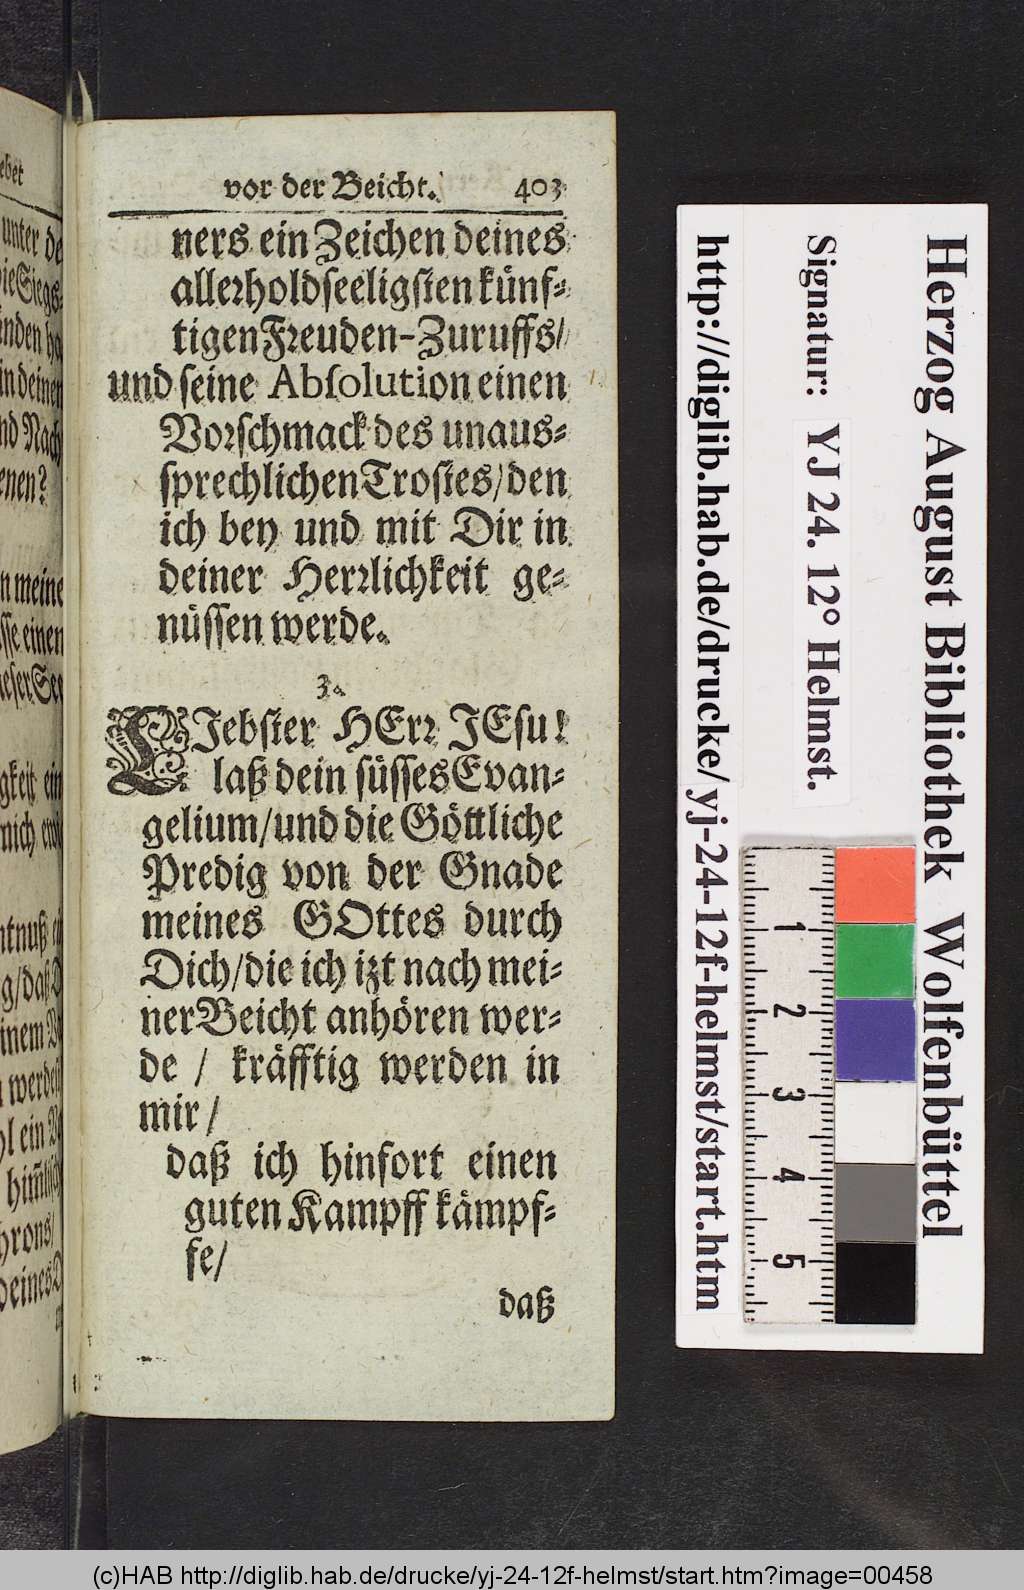 vor der Beicht. 403
ners ein Zeichen deines
allerholdseeligsten künf-
tigen Freuden-Zuruffs/
und seine Absolution einen
Vorschmack des unaus-
sprechlichen Trostes/ den
ich bey und mit Dir in
deiner Herrlichkeit ge-
nüssen werde.
3.
LIebster HErr JEsu!
laß dein süsses Evan-
gelium/ und die Göttliche
Predig von der Gnade
meines GOttes durch
Dich/ die ich izt nach mei-
ner Beicht anhören wer-
de / kräfftig werden in
mir /
daß ich hinfort einen
guten Kampff kämpf-
fe/
daß
unter de
Siegs-
inden ha
in deinen
nd Nach
enen?
n meine
sse einen
ieser See
gkeit ein
mich ewi
ntnuß
g/ daß D
inem
werde
l ein
himlisch
hrons/
deines D
Herzog August Bibliothek Wolfenbüttel
Signatur: YJ 24. 12° Helmst.
http://diglib.hab.de/drucke/yj-24-12f-helmst/start.htm
1
2
3
4
5
(c)HAB http://diglib.hab.de/drucke/yj-24-12f-helmst/start.htm?image=00458